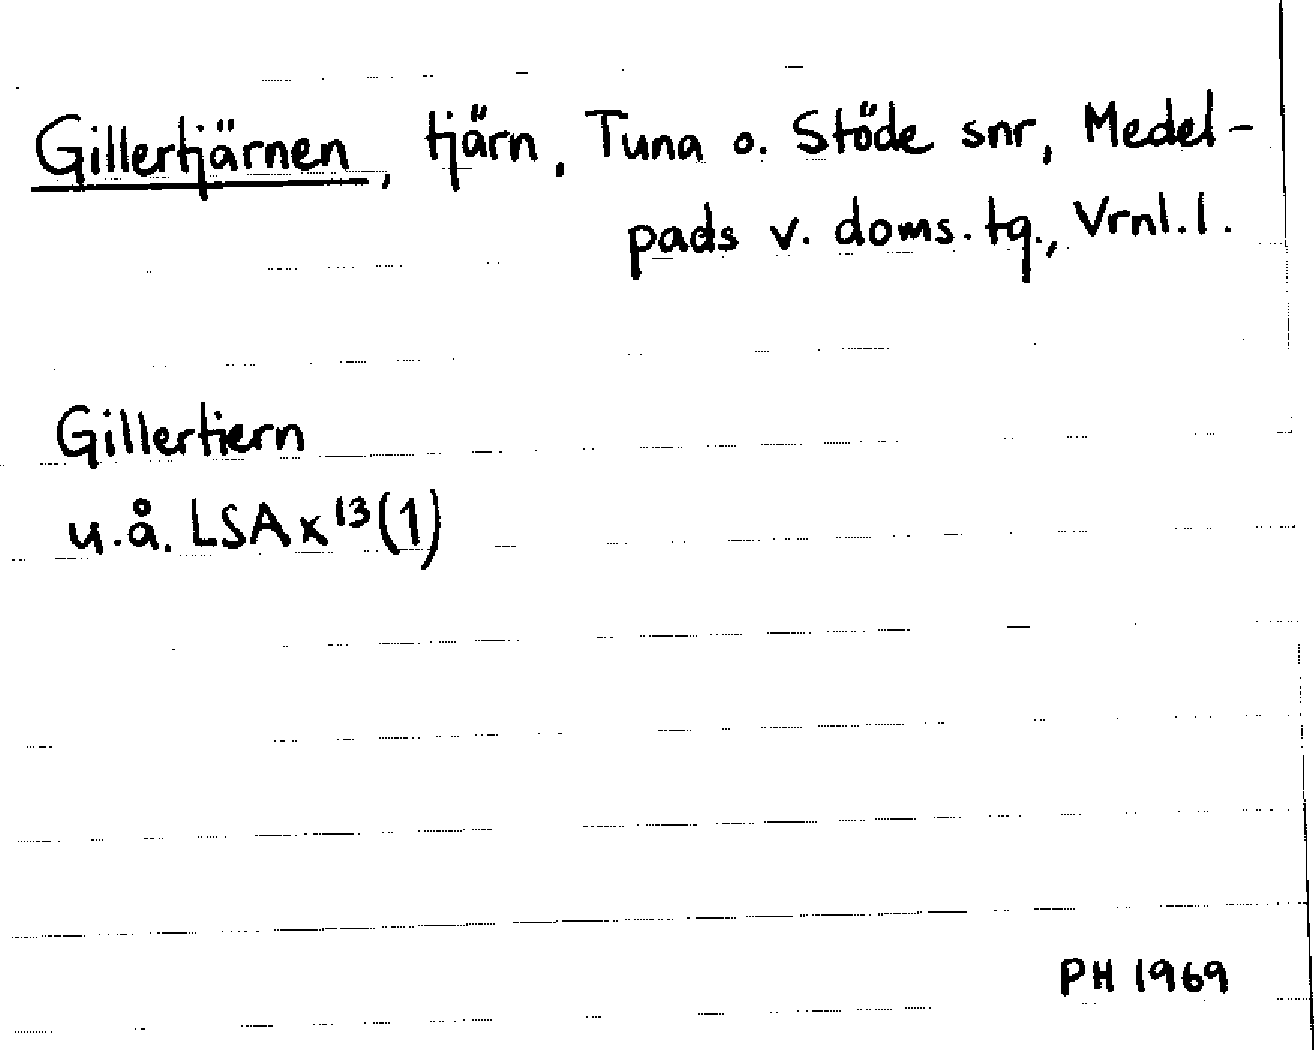 Gillertjärnen, tjärn, Tuna o. Stöde snr, Medel-
pads v. doms.tg., Vrnl.l.
Gillertiern
u.å. LSA x¹³(1)
PH 1969